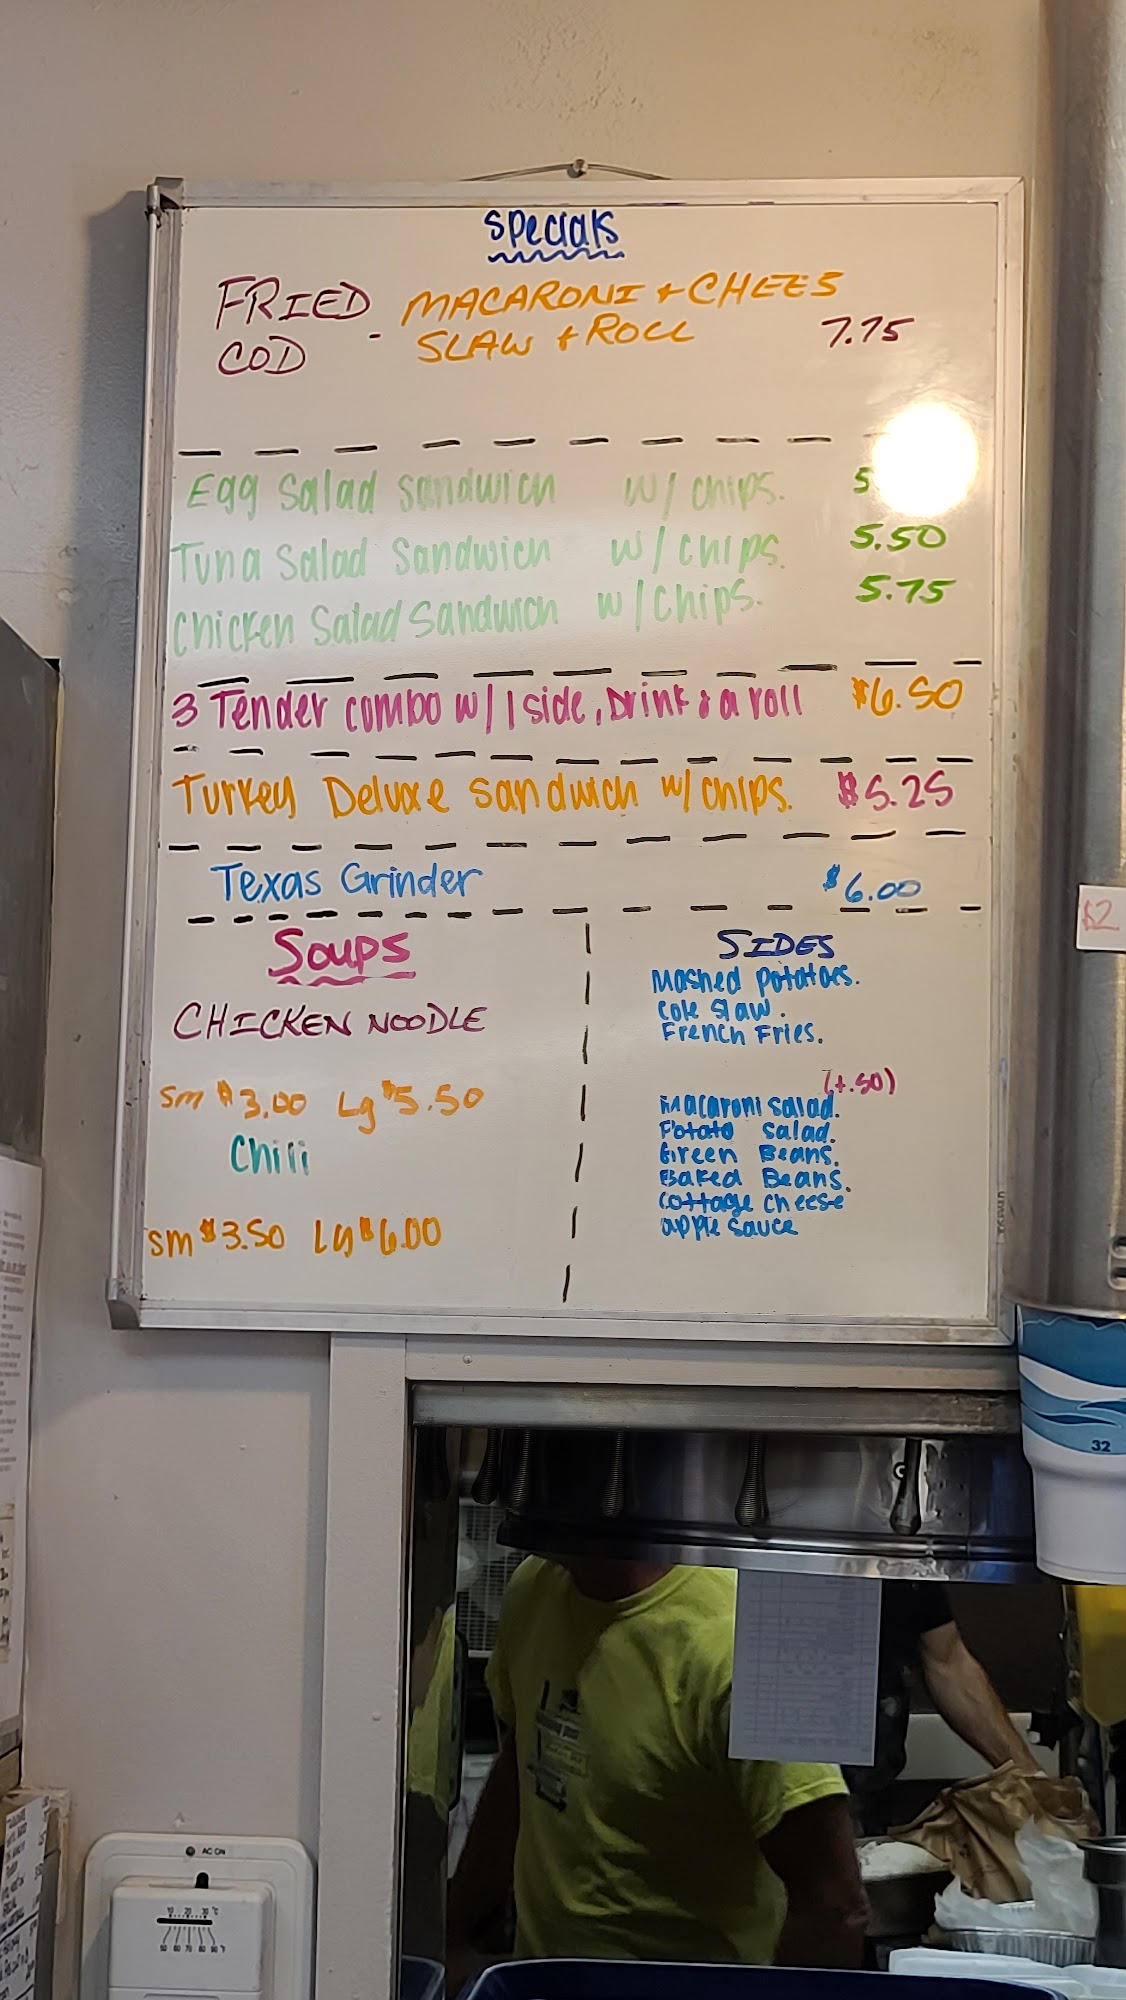 Specials
FRIED - MACARONI + CHEES
COD SLAW + ROLL 7.75
Egg Salad Sandwich w/ chips. 5
Tuna Salad Sandwich w/ chips. 5.50
Chicken Salad Sandwich w/ chips. 5.75
3 Tender combo w/ 1 side, Drink & a roll $6.50
Turkey Deluxe Sandwich w/ chips. $5.25
Texas Grinder $6.00
Soups
CHICKEN NOODLE
Sm $3.00 Lg $5.50
Chili
Sm $3.50 Lg $6.00
SIDES
Mashed Potatoes.
Cole Slaw.
French Fries.
(+.50)
Macaroni Salad.
Potato Salad.
Green Beans.
Baked Beans.
Cottage Cheese
apple sauce
$2
32
AC ON
10 20 30 °C
50 60 70 80 90 °F